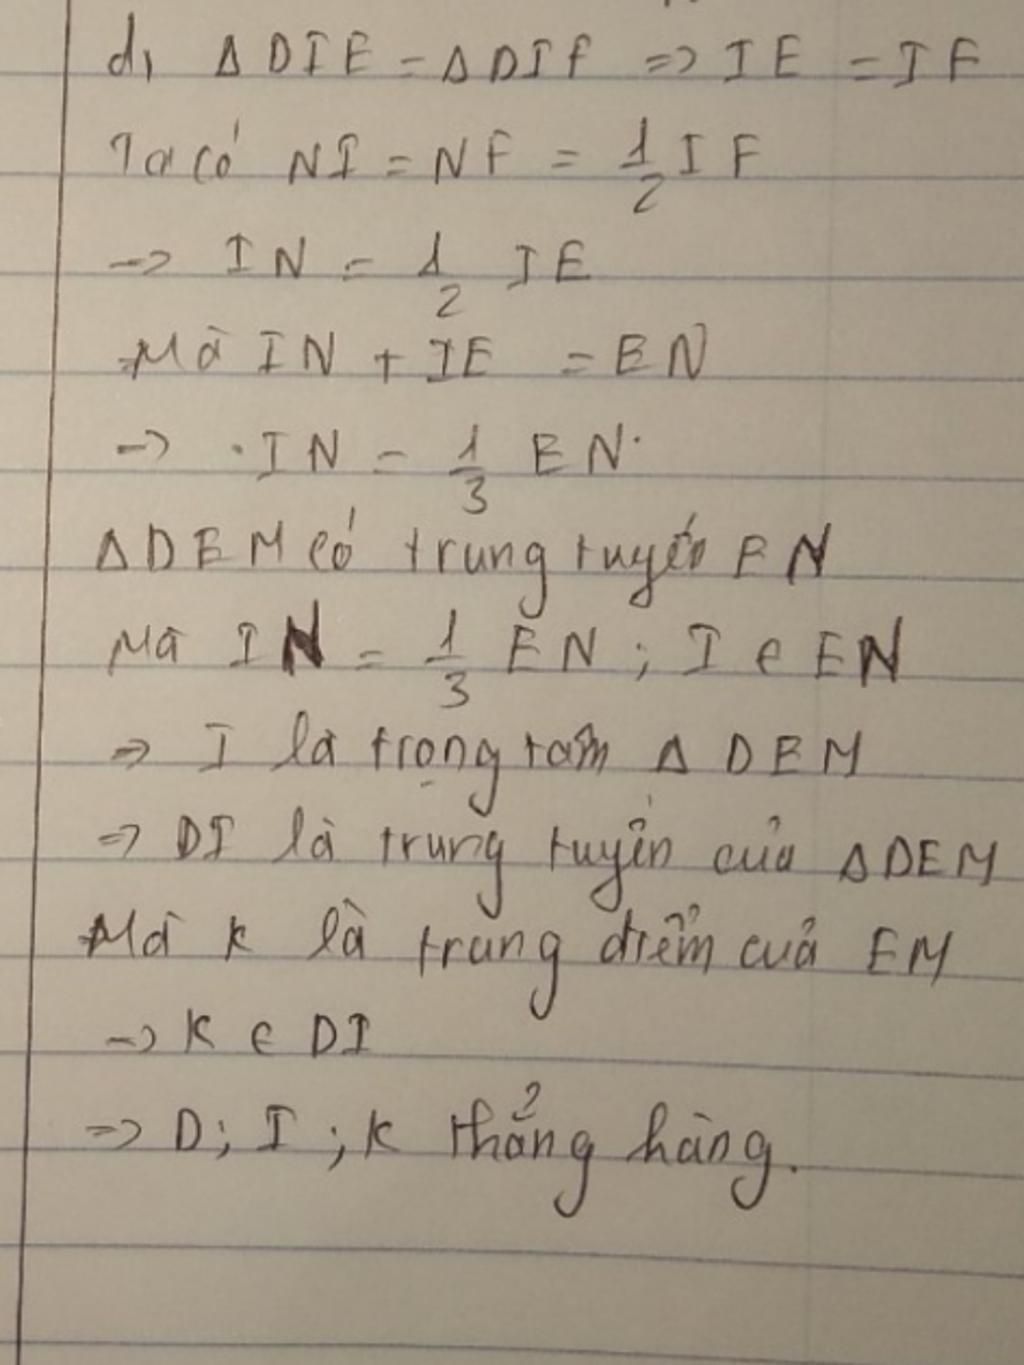 d, Δ DIE = Δ DIF => IE = IF
Ta có NI = NF = 1/2 IF
-> IN = 1/2 IE
Mà IN + IE = EN
-> IN = 1/3 EN
Δ DEM có trung tuyến EN
Mà IN = 1/3 EN ; I ∈ EN
=> I là trọng tâm Δ DEM
=> DI là trung tuyến của Δ DEM
Mà K là trung điểm của EM
-> K ∈ DI
=> D; I ; K thẳng hàng.